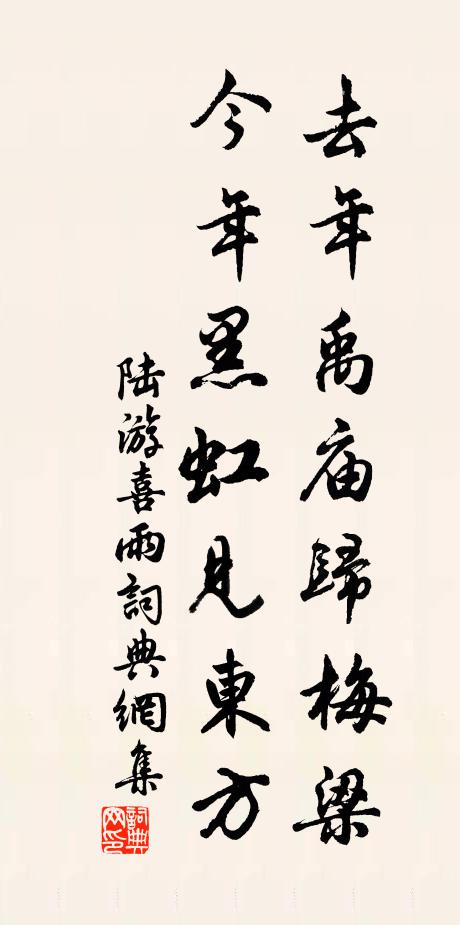 去年禹庙歸梅梁
今年黑虹見東方
陆游喜雨詞典網集
詞典網印